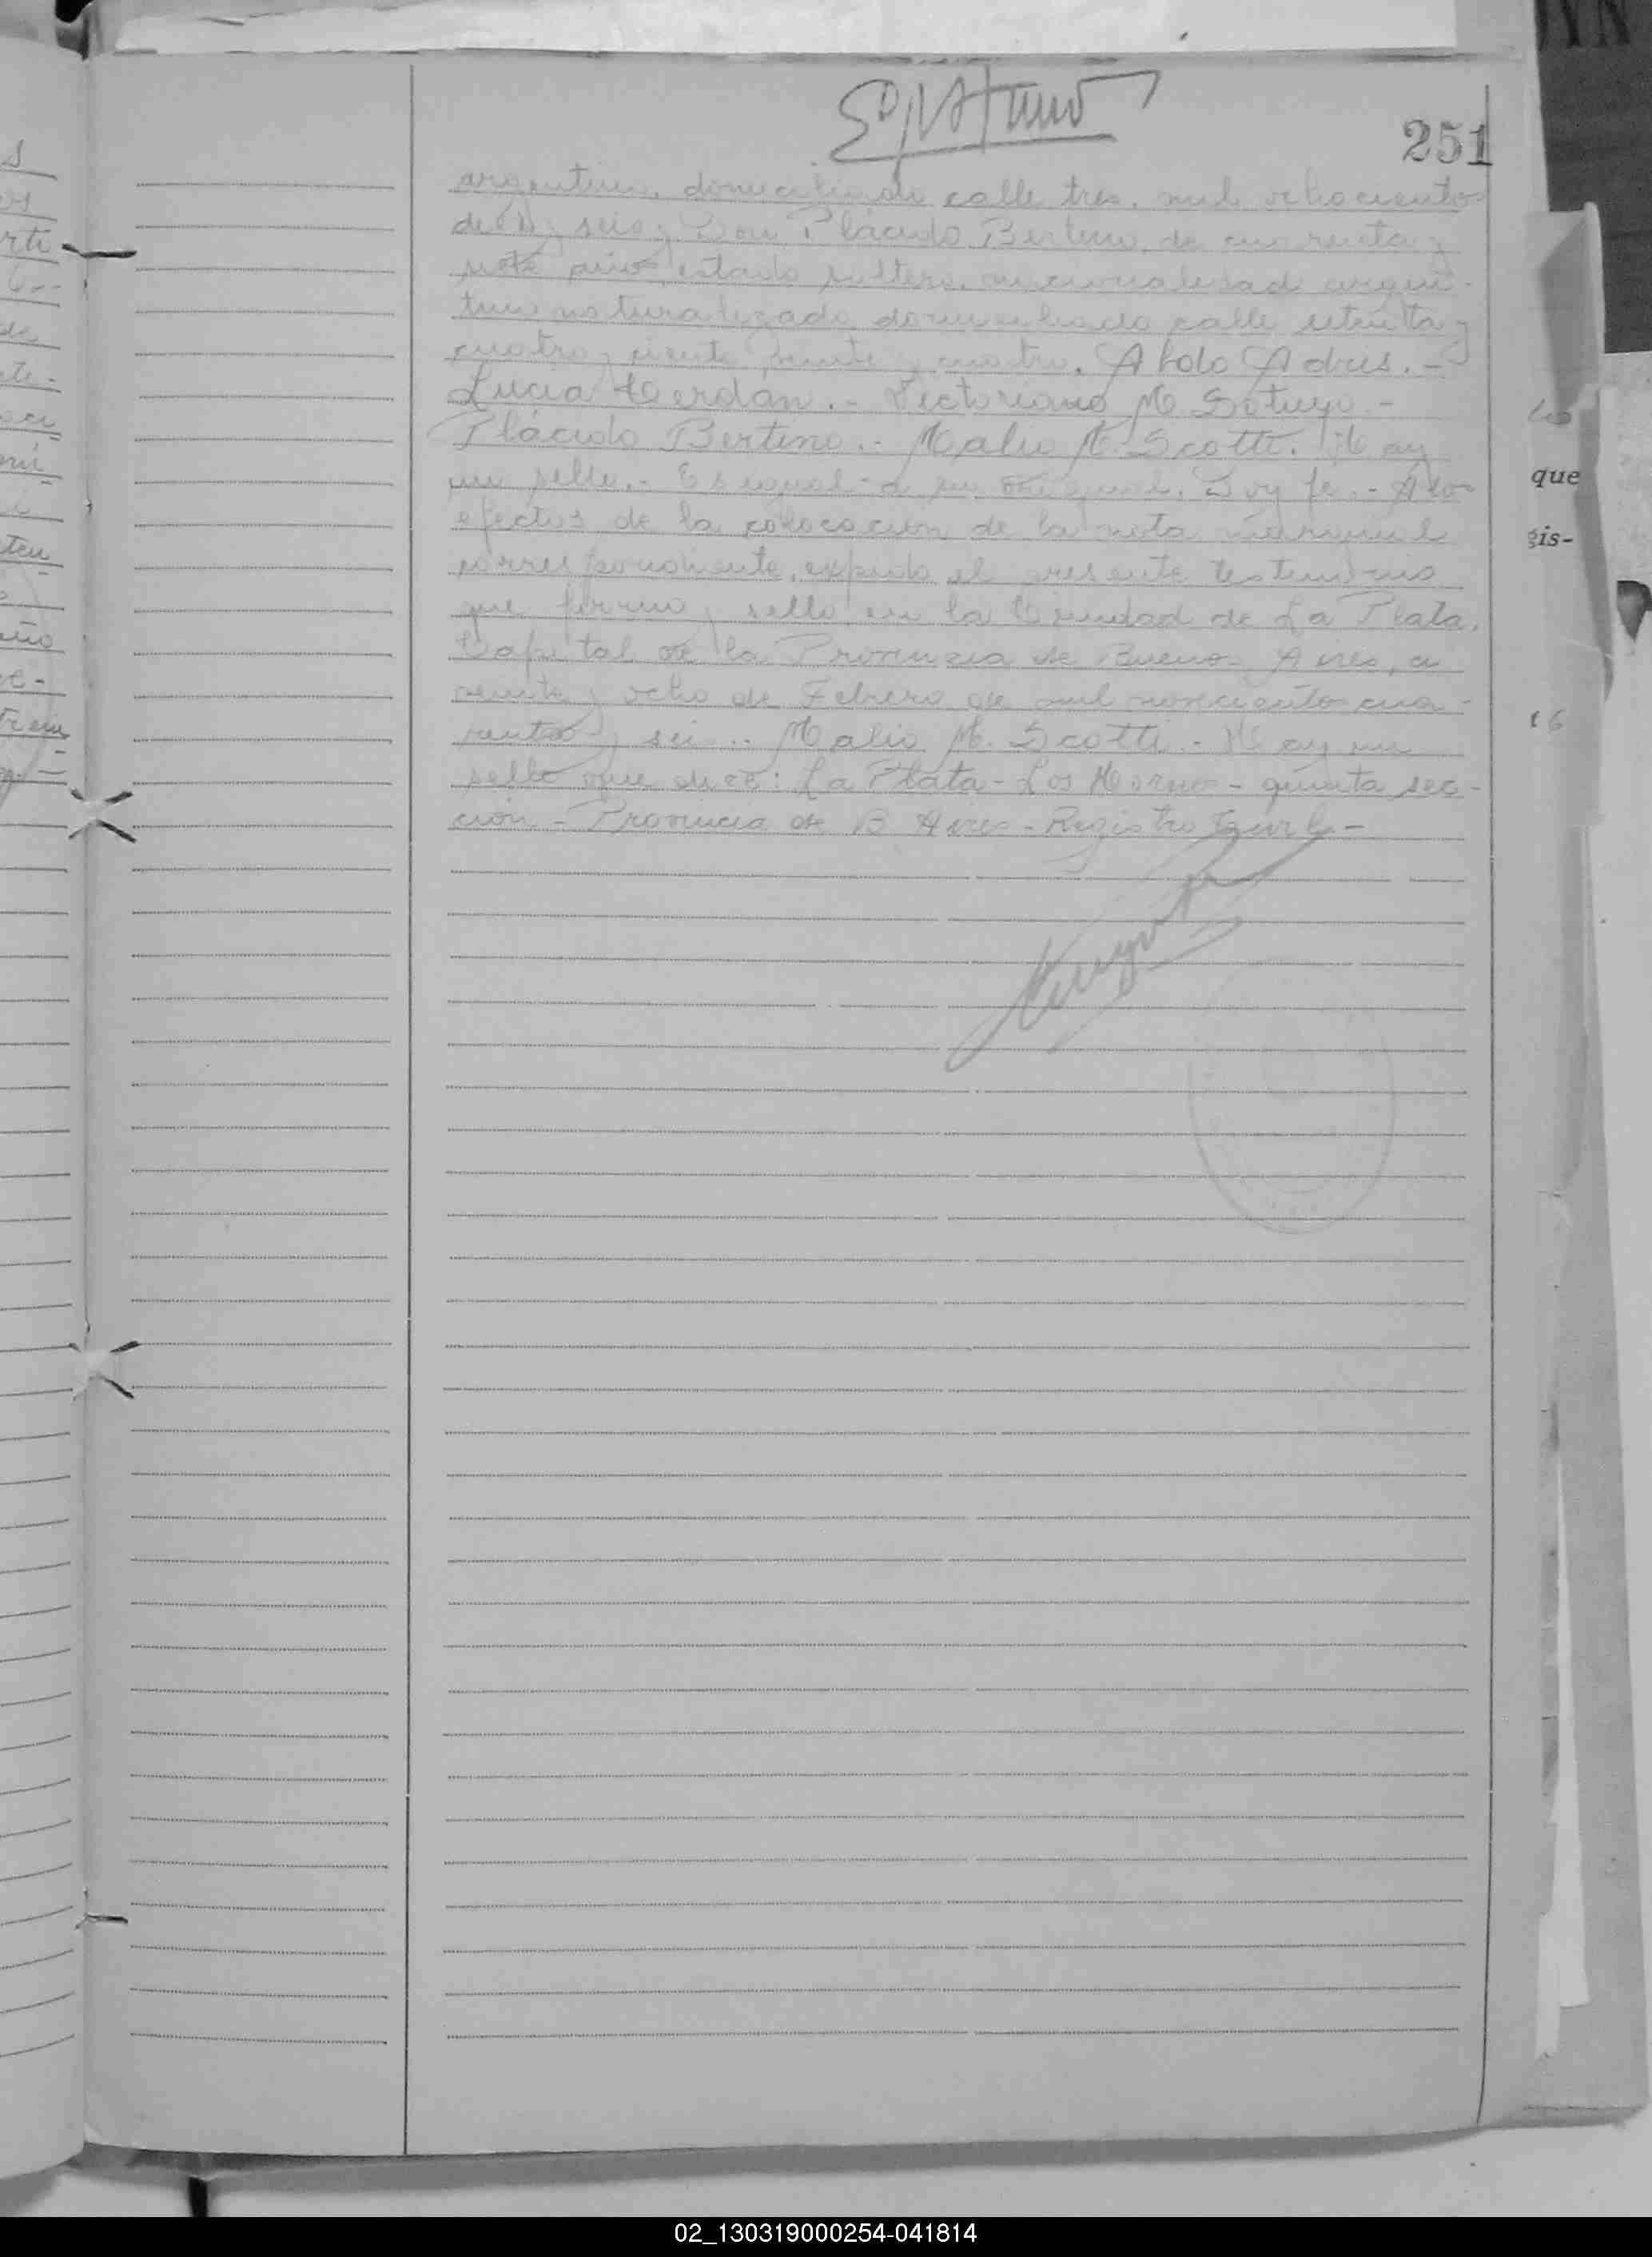 251
argentino, domiciliado calle tres, mil ochocientos
diez y seis y Don Plácido Bertino, de cuarenta y
siete años, estado soltero, nacionalidad argen-
tino naturalizado, domiciliado calle setenta y
cuatro, ciento veinte y cuatro. Abdo Adris.-
Lucía Cerdán.- Victoriano M Sotuyo.-
Plácido Bertino.- Malio M. Scotti. Hay
un sello.- Es igual a su original. Doy fe.- A los
efectos de la colocación de la nota marginal
correspondiente, expido el presente testimonio
que firmo y sello en la Ciudad de La Plata,
Capital de la Provincia de Buenos Aires, a
veinte y ocho de Febrero de mil novecientos cua-
renta y seis.- Malio M. Scotti.- Hay un
sello que dice: La Plata - Los Hornos - quinta sec-
ción - Provincia de B Aires - Registro Civil -
que
gis-
16
02_130319000254-041814